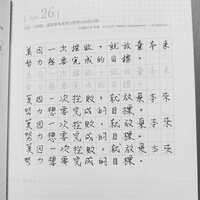 26
莫因一次挫敗,就放棄本來
努力想要完成的目標。
莫因一次挫敗,就放棄本來
努力想要完成的目標。
莫因一次挫敗,就放棄本來
努力想要完成的目標。
莫因一次挫敗,就放棄本來
努力想要完成的目標。